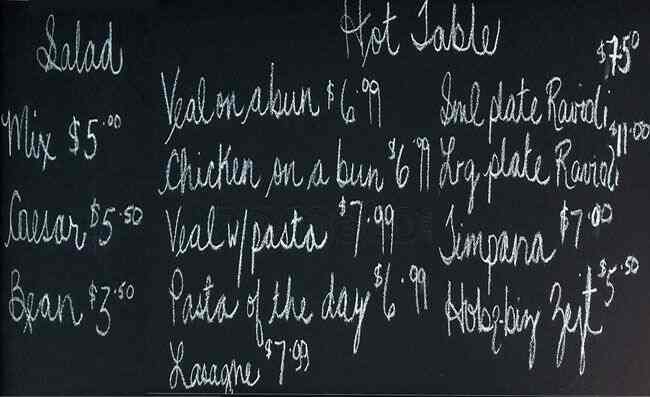 Salad
Mix $5.00
Caesar $5.50
Bean $3.50
Hot Table
Veal on a bun $6.99
Chicken on a bun $6.99
Veal w/pasta $7.99
Pasta of the day $6.99
Lasagne $7.99
Sml plate Ravioli $7.50
Lrg plate Ravioli $11.00
Timpana $7.00
Hobz-biz Zejt $5.50